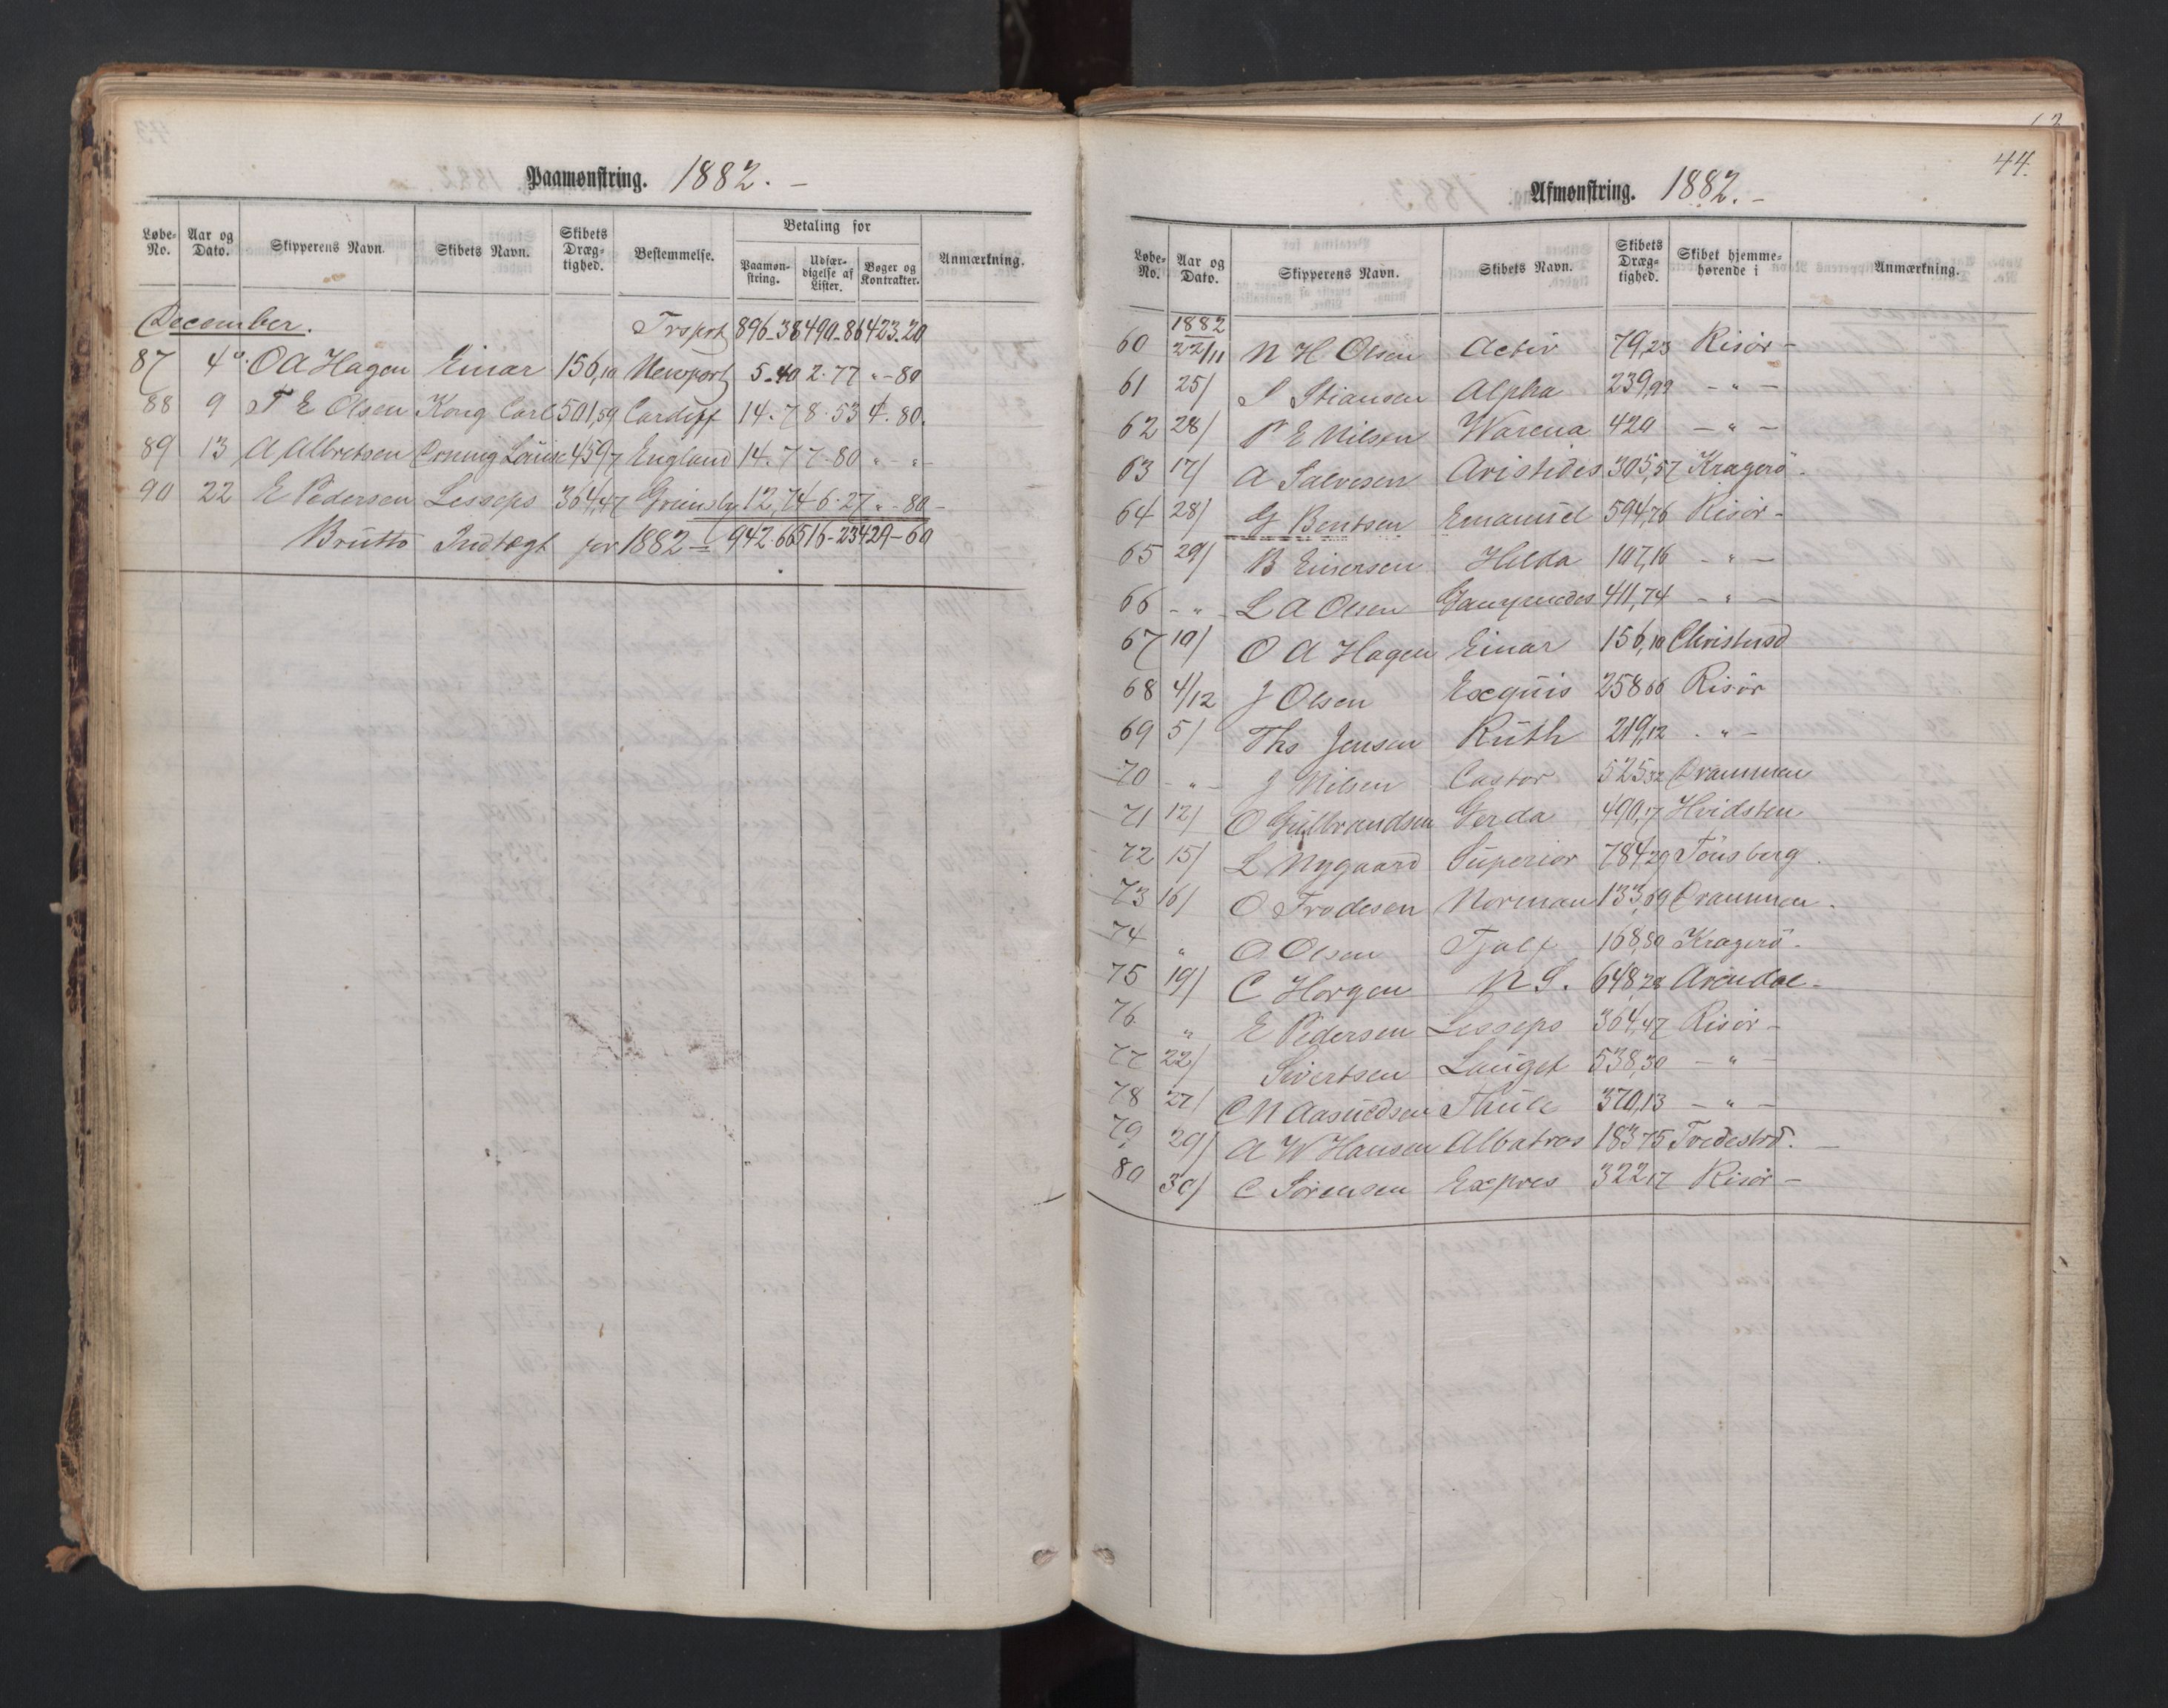 Paamønstring. 1882. –
Løbe-No. Aar og Dato. Skipperens Navn. Skibets Navn. Skibets Dræg-tighed. Bestemmelse. Betaling for Paamøn-string. Udfær-digelse af Lister. Bøger og Kontrakter. Anmærkning.
December. Trsport 896-38 490-86 423-20
87 4 O A Hagen Einar 156,10 Newport 5-40 2-77 "-80
88 9 T E Olsen Kong Carl 501,59 Cardiff 14.7 8.53 4.80.
89 13 A Albretsen Louise 459,7 England 14.7 7-80 "-"-
90 22 E Pedersen Lesseps 364,47 Grimsby 12,74 6.27 "-80-
Brutto Indtægt for 1882 = 942.66 516-23 429-60
44.
Afmønstring. 1882. –
Løbe-No. Aar og Dato. Skipperens Navn. Skibets Navn. Skibets Dræg-tighed. Skibet hjemme-hørende i Anmærkning.
1882
60 22/11 N H Olsen Activ 79,23 Risör –
61 25/ S Stiansen Alpha 239,99 – " –
62 28/ P E Nilsen Warena 420 – " –
63 17/ A Salvesen Aristides 305,57 Kragerö –
64 28/ G Bentsen Emanuel 594,76 Risör –
65 29/ B Einersen Helda 107,16 – " –
66 – " – L A Olsen Ganymedes 411,74 – " –
67 10/ O A Hagen Einar 156,10 Christiansd
68 4/12 J Olsen Exquis 258 66 Risör
69 5/ Ths Jensen Ruth 219,12 – " –
70 – " – J Nilsen Castor 525 32 Drammen
71 12/ O Gulbrandsen Gerda 490,17 Hvidsten
72 15/ L Nygaard Superior 784,29 Tönsberg .
73 16/ O Frodesen Norman 133,69 Drammen .
74 " O. Olsen Tjalf 168,80 Kragerö –
75 19/ C Horgen N S. 648,28 Arendal –
76 " E Pedersen Lesseps 364,47 Risör –
77 22/ Sivertsen Lauget 538,30 – " –
78 27/ C N Aasuldsen Thule 370,13 – " –
79 29/ A W Hansen Albatros 183 75 Tvedestrd. –
80 30/ C Sörensen Expres 322,17 Risör –